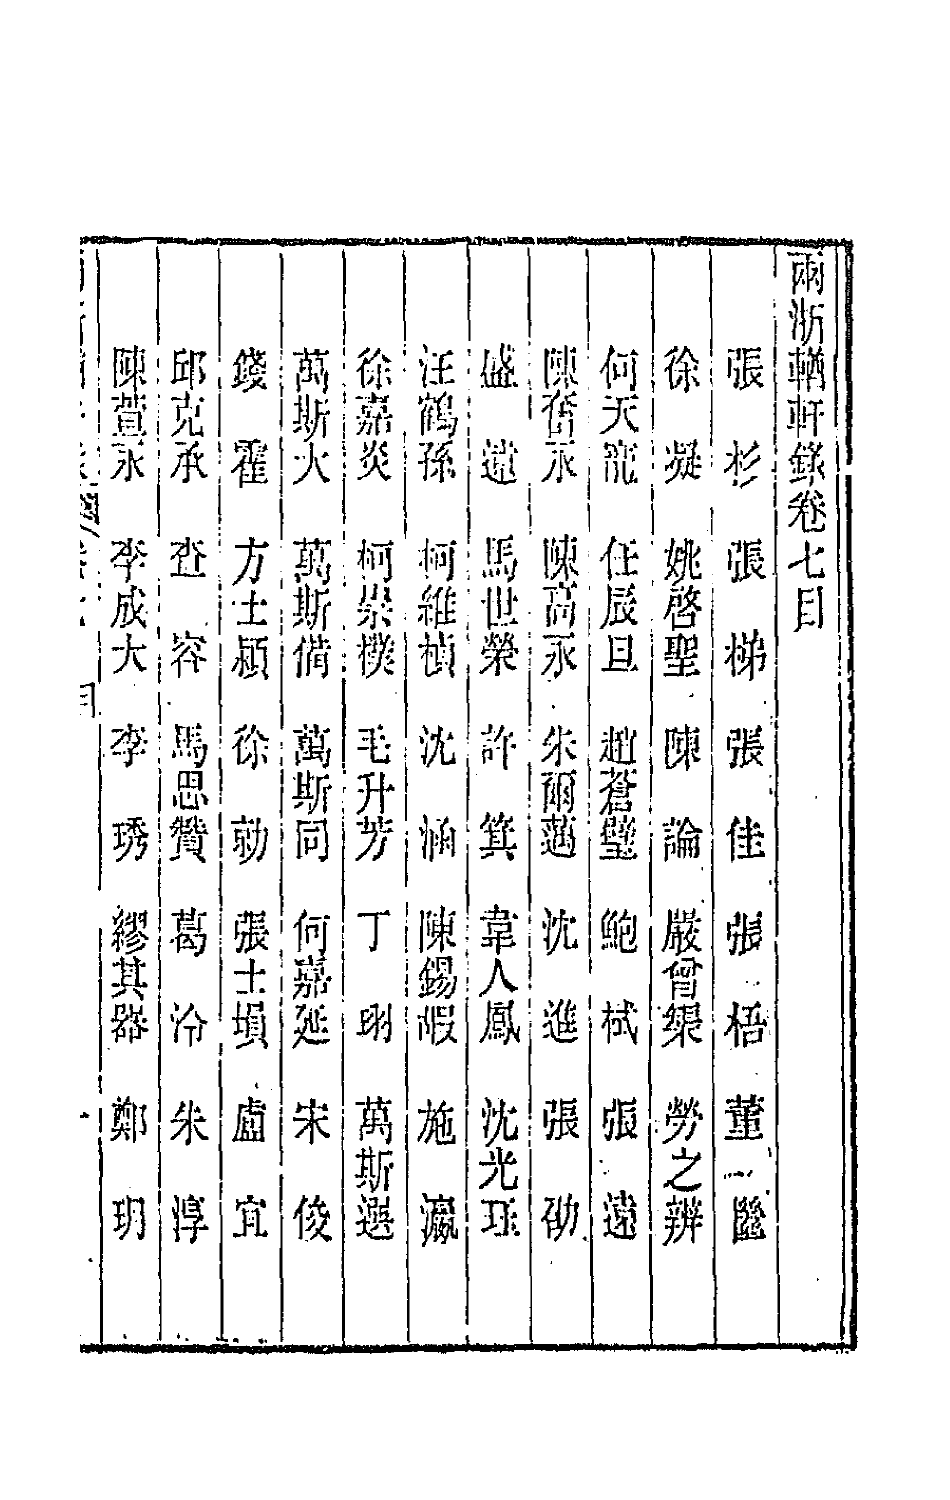 兩浙輶軒錄卷七目
張杉 張梯 張佳 張梧 董
徐凝 姚啓聖 陳論 嚴曾榘 勞之辨
何天寵 任辰旦 趙蒼璧 鮑栻 張遠
陳奮永 陳高永 朱爾邁 沈進 張劭
盛遠 馬世榮 許箕 韋人鳳 沈光
汪鶴孫 柯維楨 沈涵 陳錫嘏 施瀛
徐嘉炎 柯崇樸 毛升芳 丁 萬斯選
萬斯大 萬斯備 萬斯同 何嘉延 宋俊
錢霍 方士穎 徐勍 張士塤 盧宜
邱克承 查容 馬思贊 葛泠 朱淳
陳萱永 李成大 李琇 繆其器 鄭玥